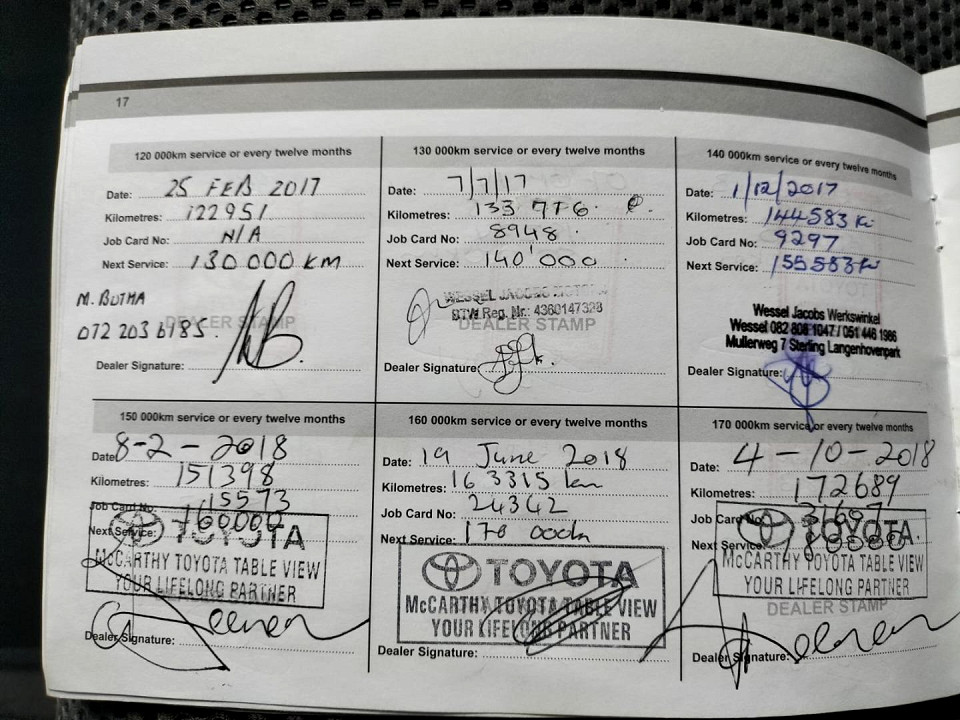 17
120 000km service or every twelve months
Date: 25 FEB 2017
Kilometres: 122951
Job Card No: N/A
Next Service: 130 000 KM
M. BOTHA
072 203 6185
DEALER STAMP
Dealer Signature:
130 000km service or every twelve months
Date: 7/7/17
Kilometres: 133 776
Job Card No: 8948
Next Service: 140'000
WESSEL JACOBS
BTW Reg. Nr.: 4360147328
DEALER STAMP
Dealer Signature:
140 000km service or every twelve months
Date: 1/12/2017
Kilometres: 144583 K
Job Card No: 9297
Next Service: 155583 K
Wessel Jacobs Werkswinkel
Wessel 082 808 1047 / 051 446 1986
Mullerweg 7 Sterling Langenhovenpark
Dealer Signature:
150 000km service or every twelve months
Date: 8-2-2018
Kilometres: 151398
Job Card No: 15573
Next Service: 160000
TOYOTA
McCARTHY TOYOTA TABLE VIEW
YOUR LIFELONG PARTNER
Dealer Signature:
160 000km service or every twelve months
Date: 19 June 2018
Kilometres: 163315 km
Job Card No: 24342
Next Service: 170 000
TOYOTA
McCARTHY TOYOTA TABLE VIEW
YOUR LIFELONG PARTNER
Dealer Signature:
170 000km service or every twelve months
Date: 4-10-2018
Kilometres: 172689
Job Card No:
Next Service:
TOYOTA
McCARTHY TOYOTA TABLE VIEW
YOUR LIFELONG PARTNER
DEALER STAMP
Dealer Signature: